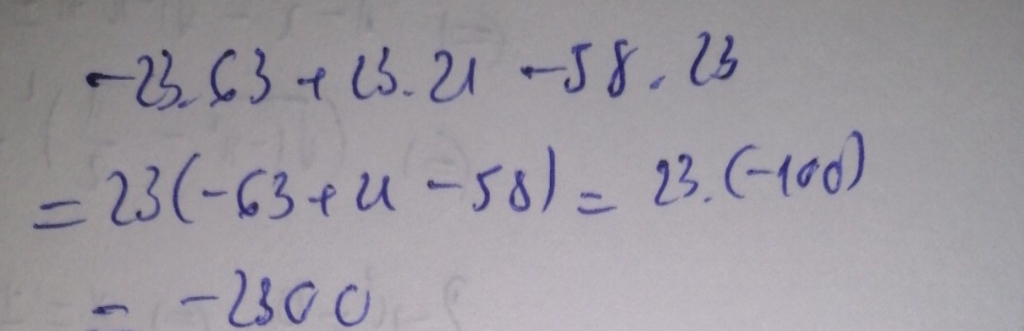 -23.63 + 23.21 - 58.23
= 23(-63 + 21 - 58) = 23.(-100)
= -2300